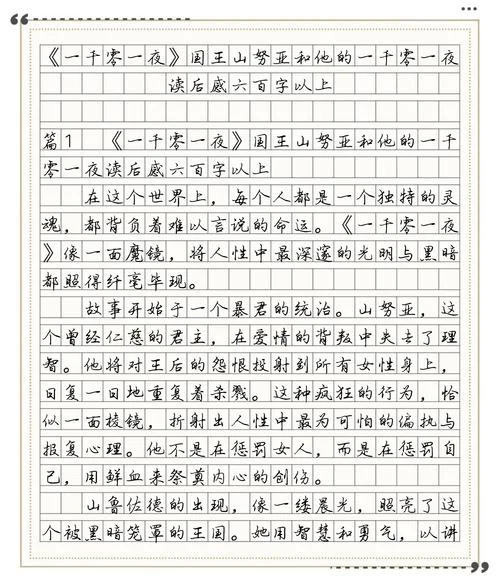 《一千零一夜》国王山努亚和他的一千零一夜
读后感六百字以上
篇1 《一千零一夜》国王山努亚和他的一千
零一夜读后感六百字以上
在这个世界上，每个人都是一个独特的灵
魂，都背负着难以言说的命运。《一千零一夜
》像一面魔镜，将人性中最深邃的光明与黑暗
都照得纤毫毕现。
故事开始于一个暴君的统治。山努亚，这
个曾经仁慈的君主，在爱情的背叛中失去了理
智。他将对王后的怨恨投射到所有女性身上，
日复一日地重复着杀戮。这种疯狂的行为，恰
似一面棱镜，折射出人性中最为可怕的偏执与
报复心理。他不是在惩罚女人，而是在惩罚自
己，用鲜血来祭奠内心的创伤。
山鲁佐德的出现，像一缕晨光，照亮了这
个被黑暗笼罩的王国。她用智慧和勇气，以讲